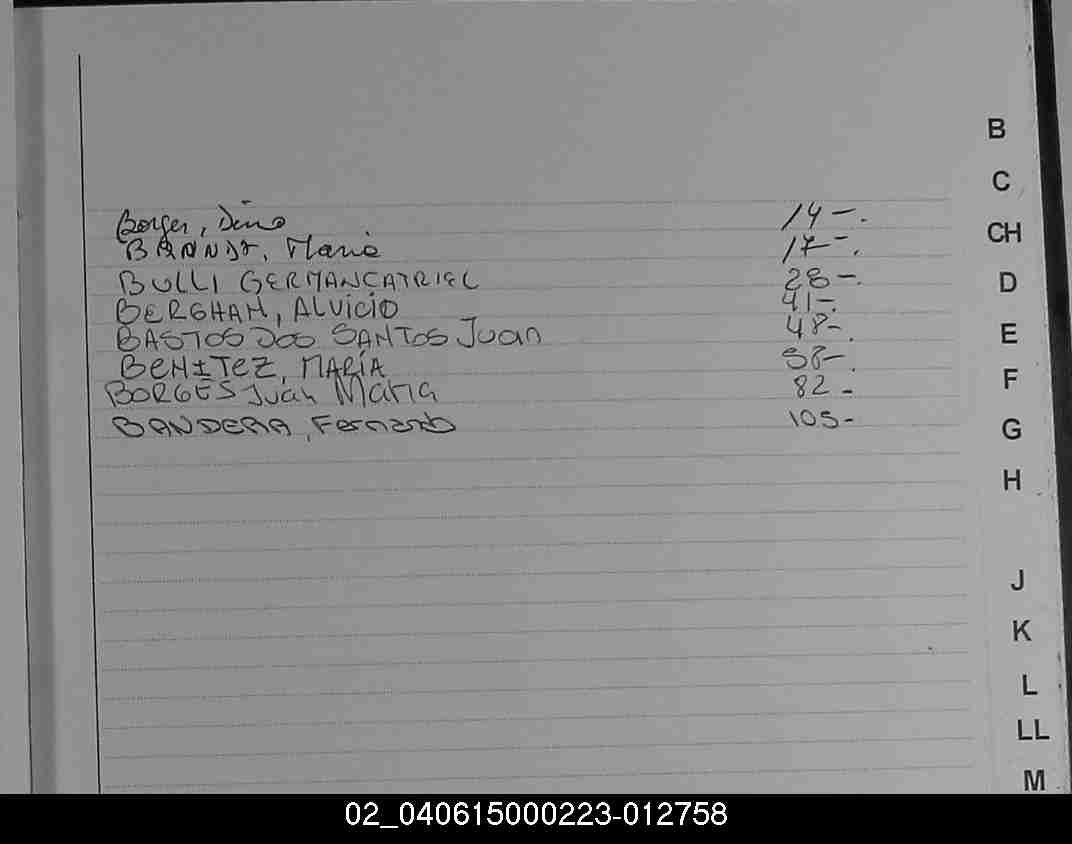 Borger, Dino 14-.
BRANDT, Mario 17-.
BULLI GERMAN CATRIEL 28-.
BERGHAM, ALVICIO 41-.
BASTOS DOS SANTOS Juan 48-.
BENITEZ, MARÍA 58-.
BORGES Juan Maria 82-
BANDERA, Fernando 105-
B
C
CH
D
E
F
G
H
J
K
L
LL
M
02_040615000223-012758